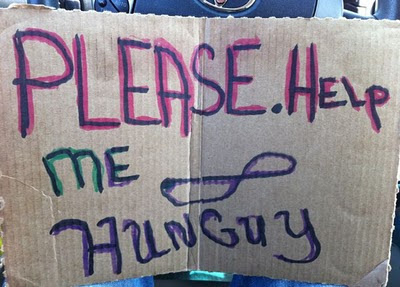 PLEASE. HELP
ME
HUNGUY